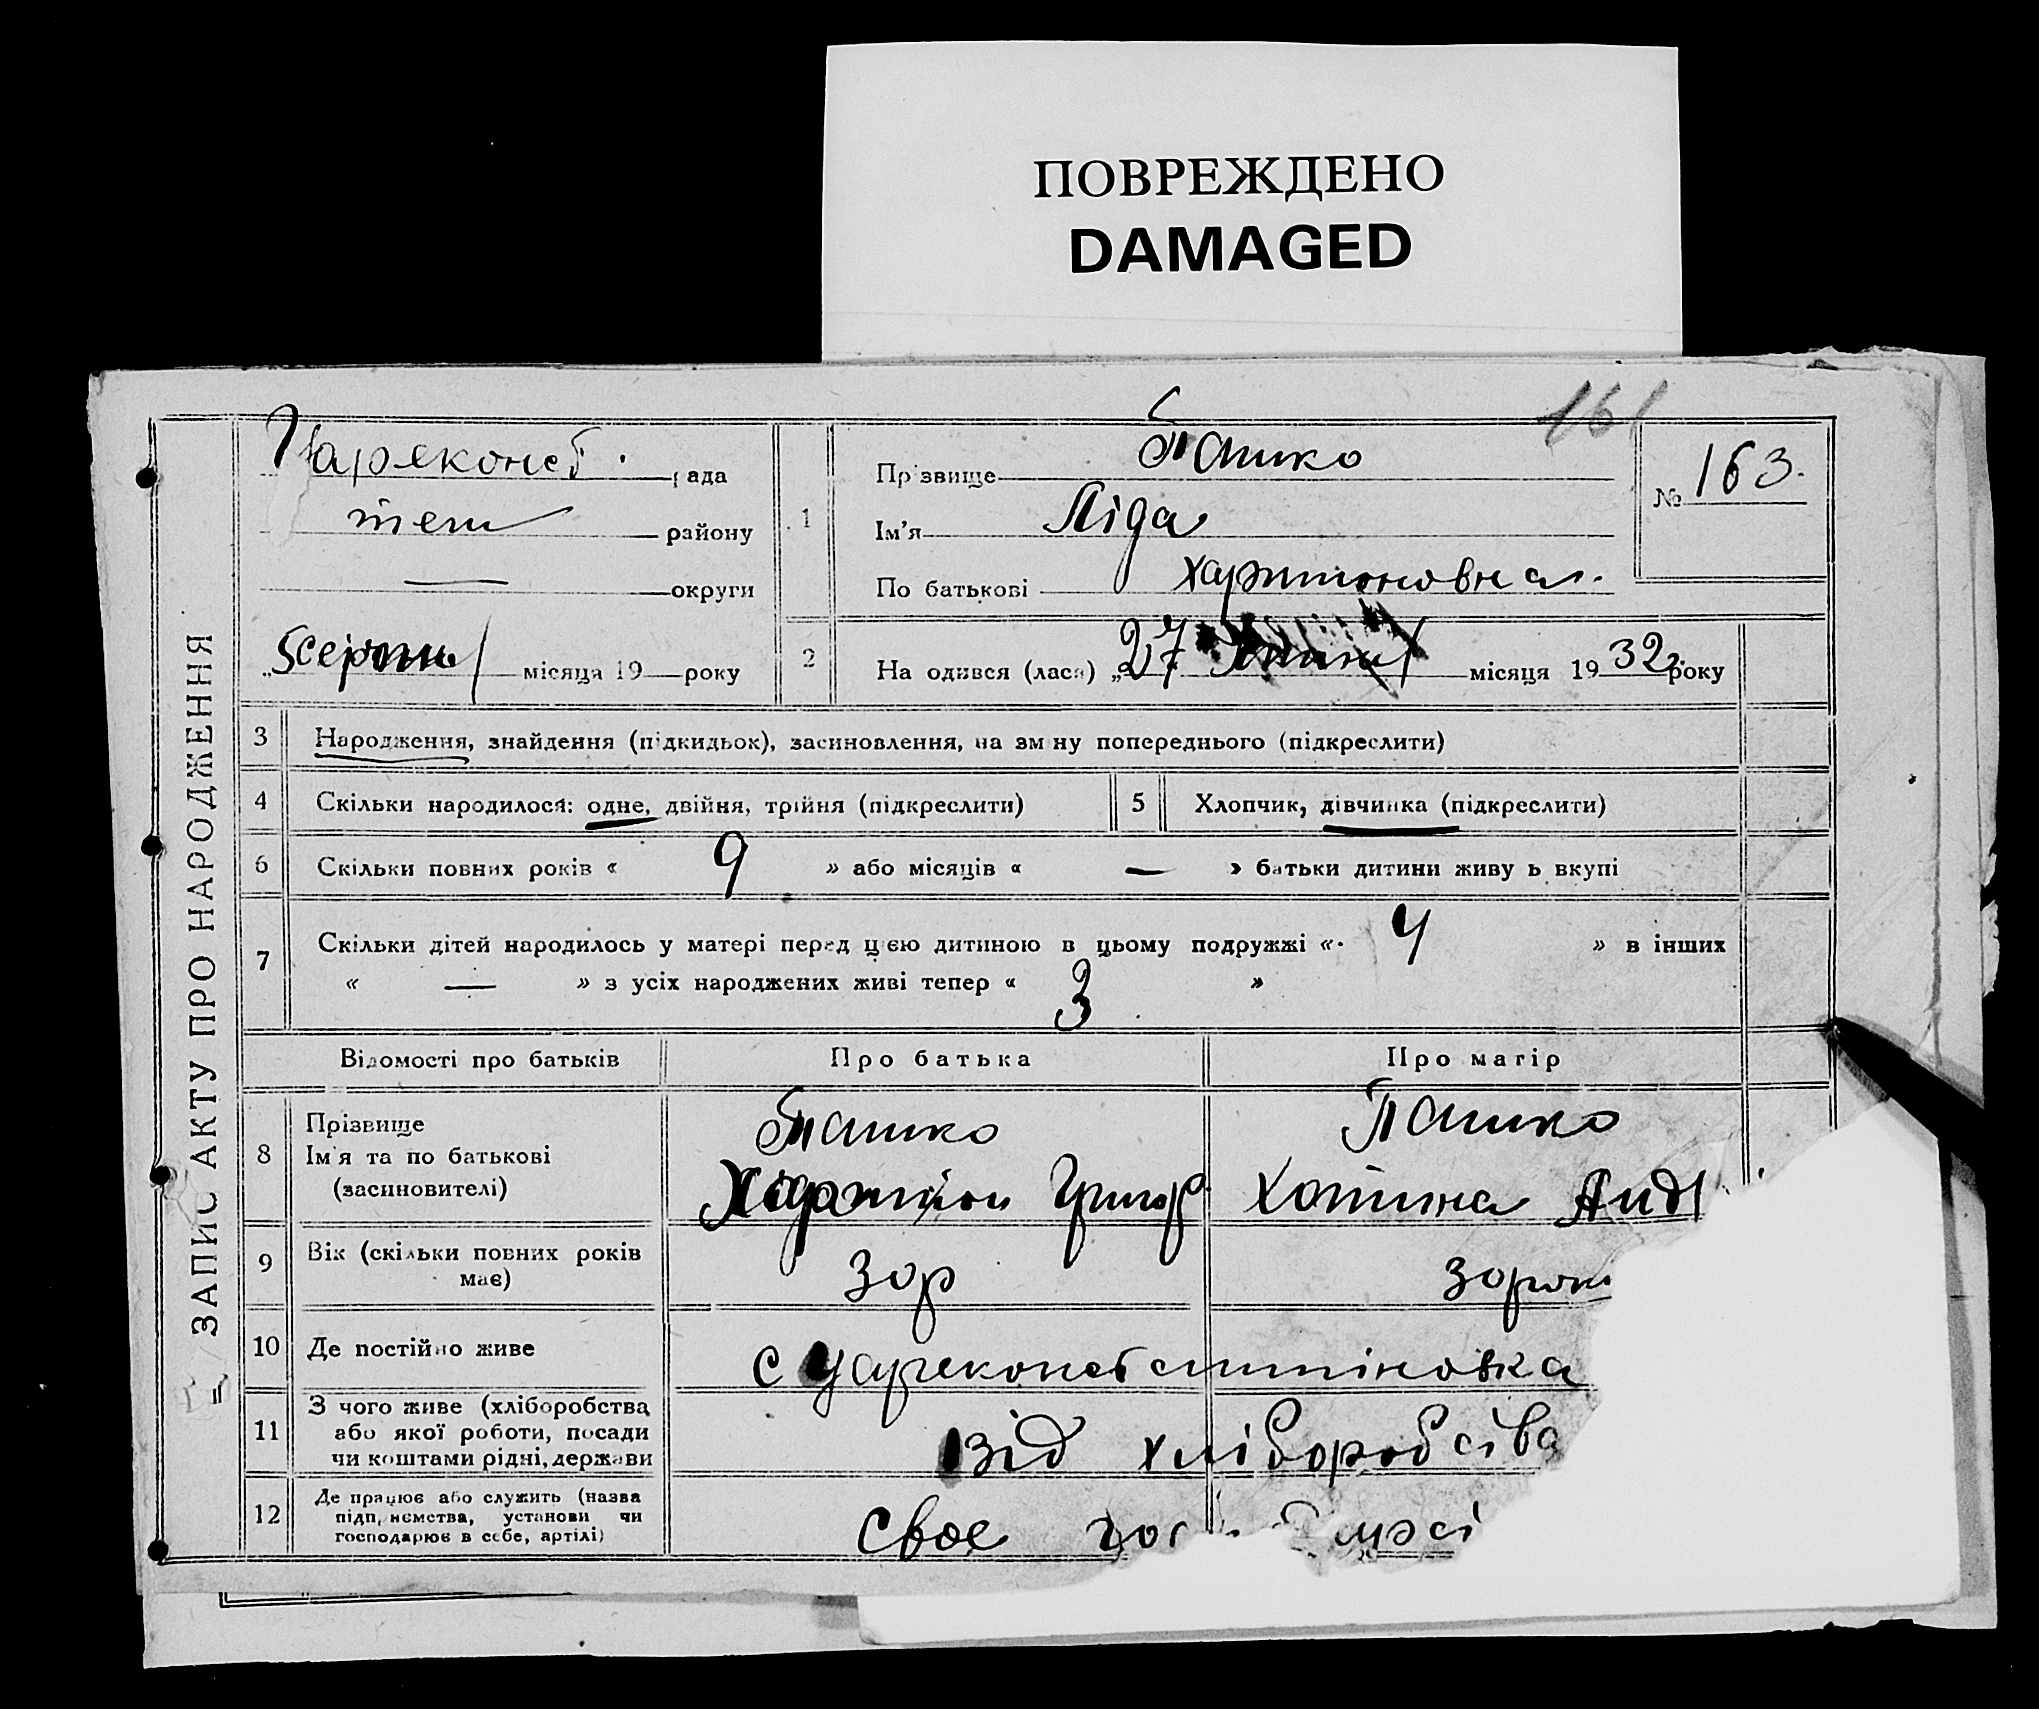 ПОВРЕЖДЕНО
DAMAGED
161
ЗАПИС АКТУ ПРО НАРОДЖЕННЯ
Царяконст. рада
району
— округи
5 серпня місяця 19 — року
1
Прізвище Пашко
Ім'я Ліда
По батькові Харитоновна.
№ 163.
2
На одився (лась) „27 місяця 1932 р. року
3 Народження, знайдення (підкидьок), засиновлення, на зміну попереднього (підкреслити)
4 Скільки народилося: одне, двійня, трійня (підкреслити) 5 Хлопчик, дівчинка (підкреслити)
6 Скільки повних років « 9 » або місяців « — » батьки дитини живуть вкупі
7 Скільки дітей народилось у матері перед цією дитиною в цьому подружжі « 4 » в інших
« — » з усіх народжених живі тепер « 3 »
Відомості про батьків Про батька Про матір
8 Прізвище Пашко Пашко
Ім'я та по батькові
(засиновителі) Харитон Григор Хотина Анд
9 Вік (скільки повних років
має) 30р 30 роки
10 Де постійно живе с Цареконстантіновка
11 З чого живе (хліборобства,
або якої роботи, посади
чи коштами рідні, держави від хліборобства
12 Де працює або служить (назва
підприємства, установи чи
господарює в себе, артілі) своє